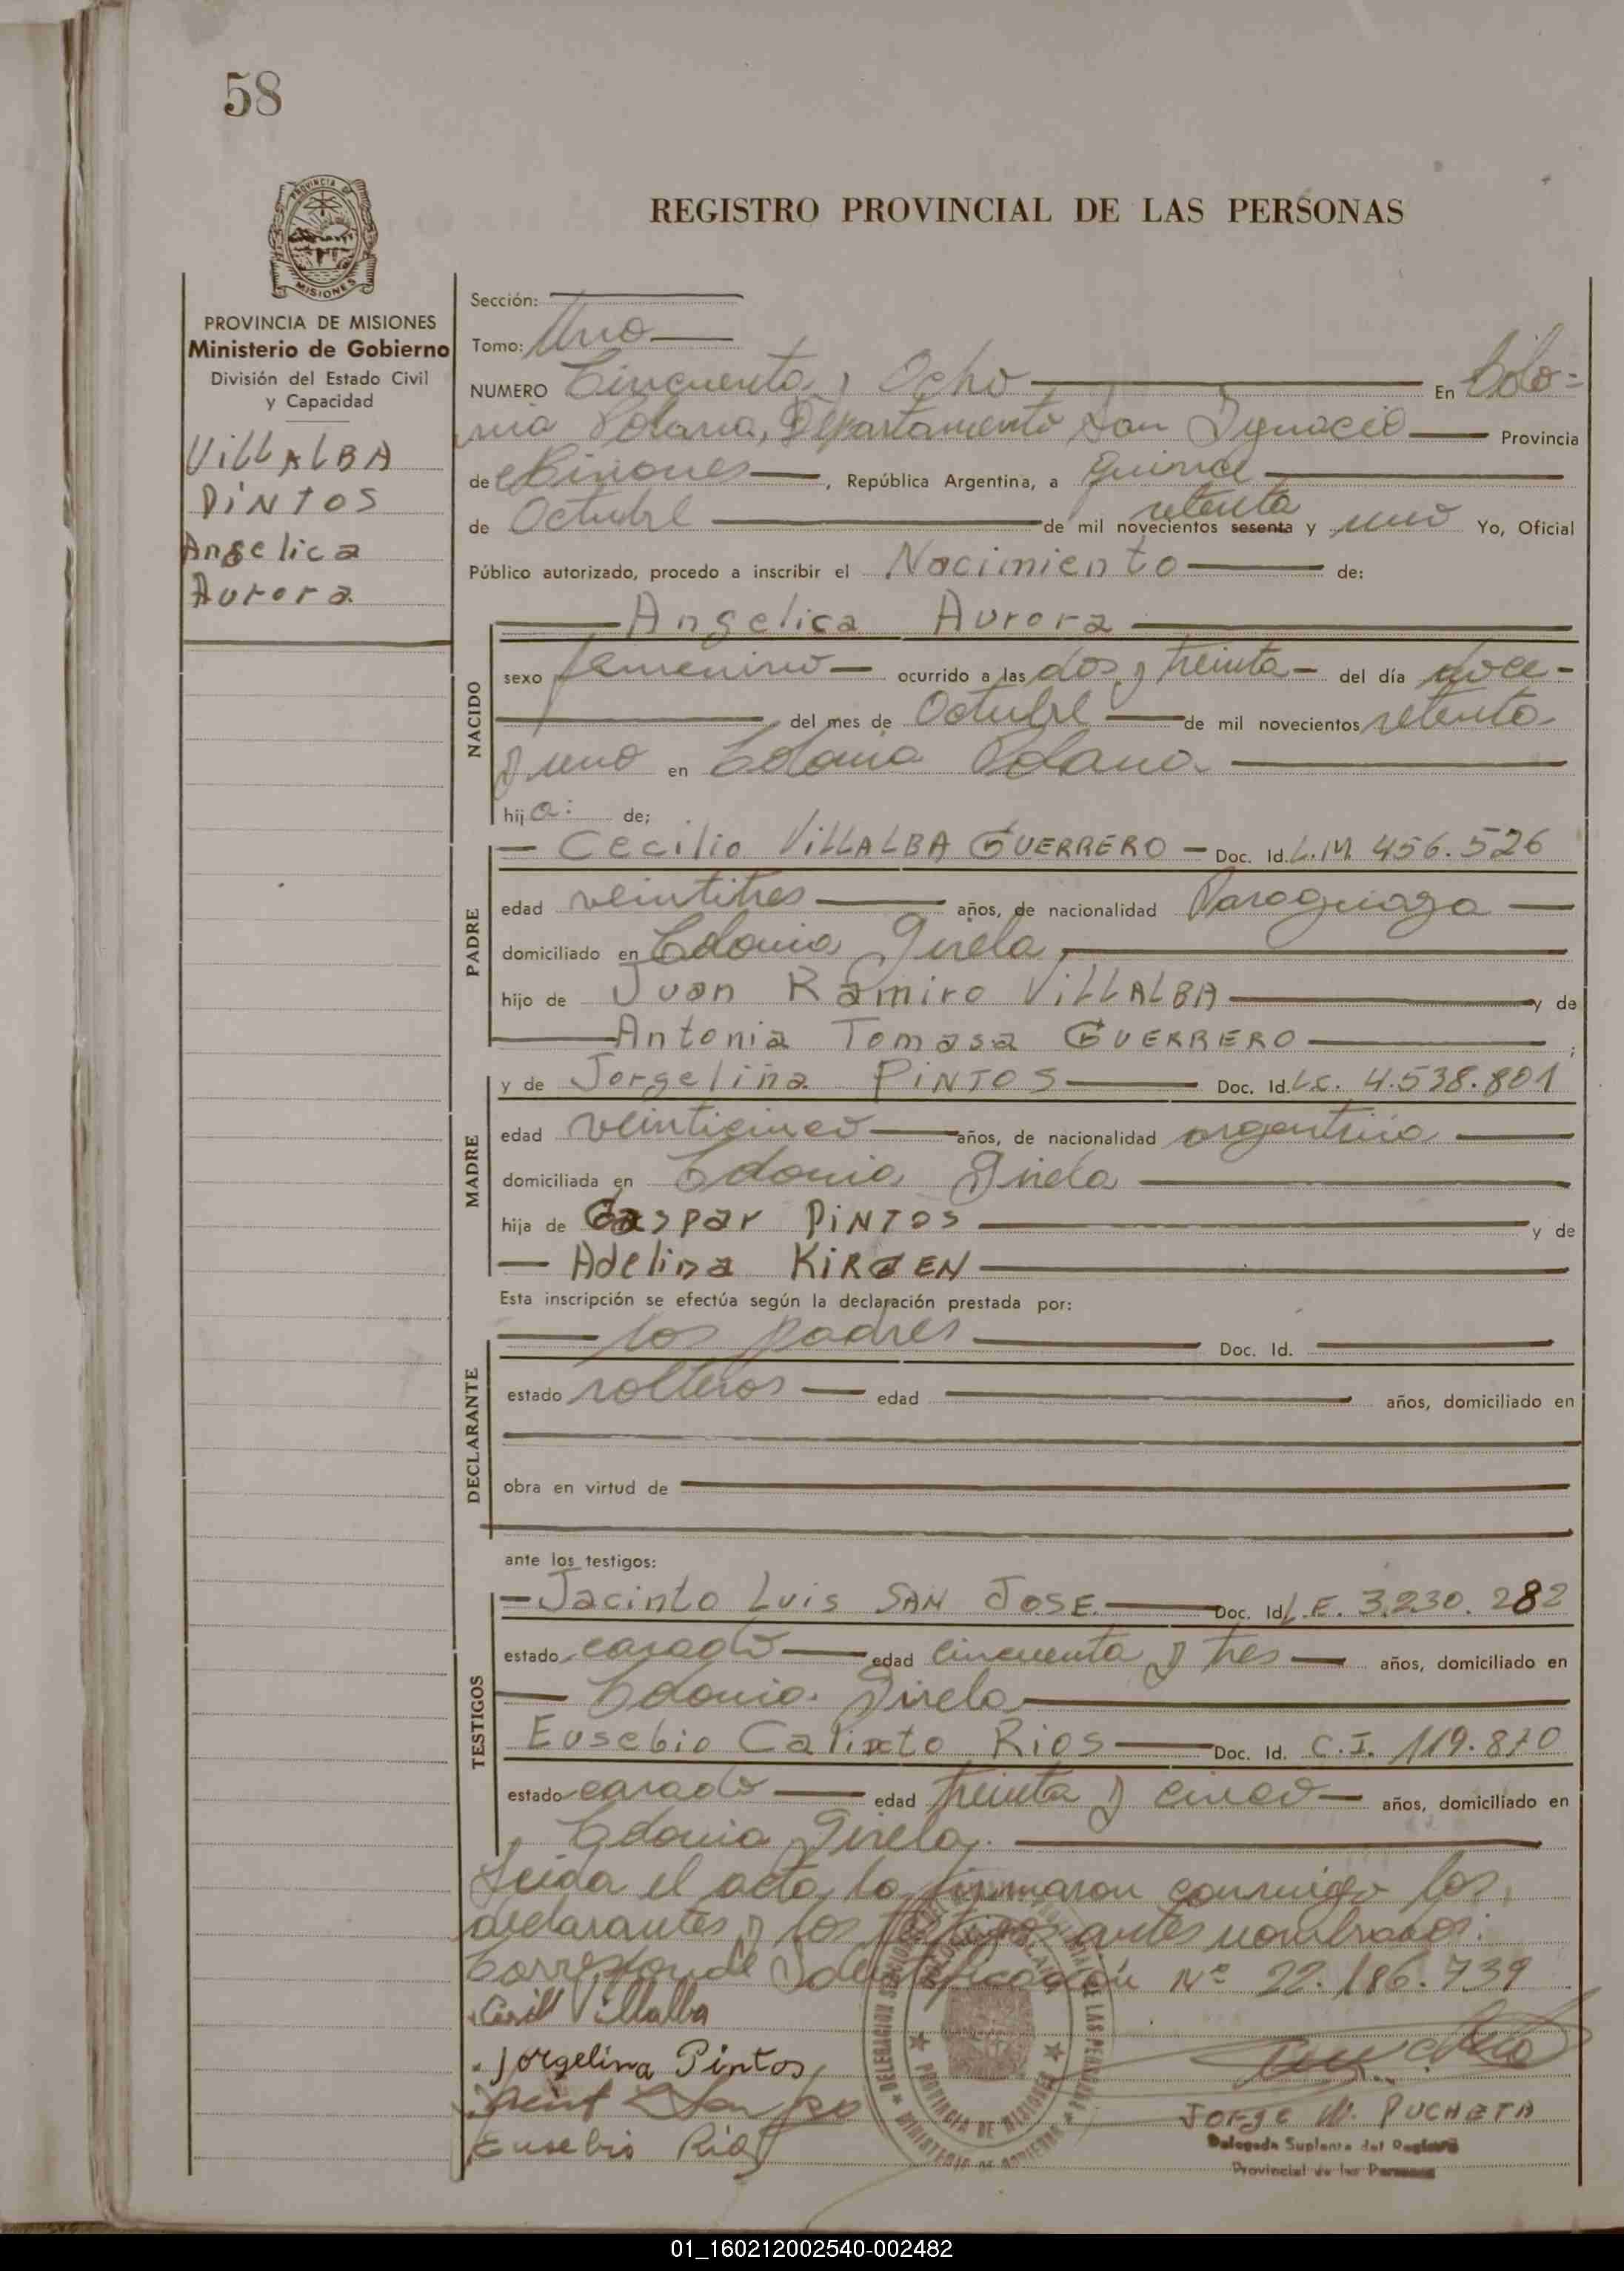 58
PROVINCIA DE
MISIONES
REGISTRO PROVINCIAL DE LAS PERSONAS
PROVINCIA DE MISIONES
Ministerio de Gobierno
División del Estado Civil
y Capacidad
VILLALBA
PINTOS
Angelica
Aurora
Sección:
Tomo: Uno
NUMERO Cincuenta y Ocho En Colo=
nia Polana, Departamento San Ignacio Provincia
de Misiones, República Argentina, a quince
setenta
de Octubre de mil novecientos sesenta y uno Yo, Oficial
Público autorizado, procedo a inscribir el Nacimiento de:
Angelica Aurora
NACIDO
sexo femenino ocurrido a las dos y treinta del día doce
del mes de Octubre de mil novecientos setenta
y uno en Colonia Polana
hija: de;
PADRE
Cecilio VILLALBA GUERRERO Doc. Id. L.M. 456.526
edad veintitres años, de nacionalidad Paraguaya
domiciliado en Colonia Gisela,
hijo de Juan Ramiro VILLALBA y de
Antonia Tomasa GUERRERO ;
MADRE
y de Jorgelina PINTOS Doc. Id. L.C. 4.538.801
edad veinticinco años, de nacionalidad argentina
domiciliada en Colonia Gisela
hija de Gaspar PINTOS y de
Adelina
Esta inscripción se efectúa según la declaración prestada por:
DECLARANTE
los padres Doc. Id.
estado solteros edad años, domiciliado en
obra en virtud de
ante los testigos:
TESTIGOS
Jacinto Luis SAN JOSE Doc. Id. L.E. 3.230.282
estado casado edad cincuenta y tres años, domiciliado en
Colonia Gisela
Eusebio Calixto Rios Doc. Id. C.I. 119.870
estado casado edad treinta y cinco años, domiciliado en
Colonia Gisela.
Leida el acta, la firmaron conmigo los
declarantes y los testigos antes nombrados.
Corresponde Identificación Nº 22.186.739
Villalba
Jorgelina Pintos
Eusebio Rios
PROVINCIA DE MISIONES
JORGE W. PUCHETA
Delegado Suplente del Registro
Provincial de las Personas
01_160212002540-002482